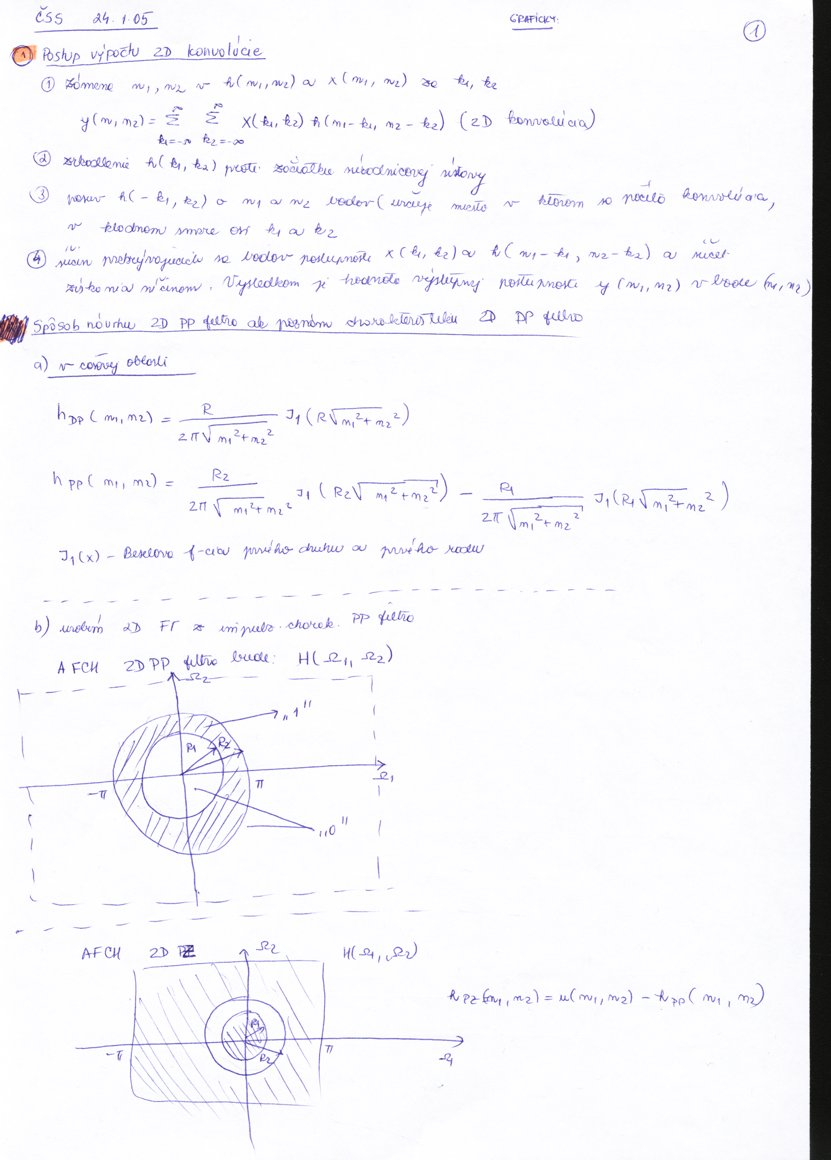 ČSS 24.1.05
GRAFICKY:
1
1 Postup výpočtu 2D konvolúcie
① zámena n1, n2 v h(n1, n2) a x(n1, n2) za k1, k2
y(n1, n2) = ∞Σk1=-∞ ∞Σk2=-∞ x(k1, k2) h(n1-k1, n2-k2) (2D konvolúcia)
② zrkadlenie h(k1, k2) proti začiatku súradnicovej sústavy
③ posuv h(-k1, k2) o n1 a n2 bodov (určuje miesto v ktorom sa počíta konvolúcia,
v kladnom smere osí k1 a k2
④ súčin prekrývajúcich sa bodov postupnosti x(k1, k2) a h(n1-k1, n2-k2) a súčet
. Výsledkom je hodnota výstupnej postupnosti y(n1, n2) v bode (n1, n2)
Spôsob návrhu 2D PP filtra ak poznám charakteristiku 2D DP filtra
a) v časovej oblasti
hDP(n1, n2) = R / 2π√(n1²+n2²) J1(R√(n1²+n2²))
hPP(n1, n2) = R2 / 2π√(n1²+n2²) J1(R2√(n1²+n2²)) - R1 / 2π√(n1²+n2²) J1(R1√(n1²+n2²))
J1(x) - Beselova f-cia prvého druhu a prvého radu
b) urobím 2D FT z impulz. charak. PP filtra
AFCH 2D PP filtra bude: H(Ω1, Ω2)
Ω2
„1"
R1 R2
-π π Ω1
„0"
AFCH 2D PZ Ω2 H(Ω1, Ω2)
hPZ(n1, n2) = u(n1, n2) - hPP(n1, n2)
R1
R2
-π π Ω1